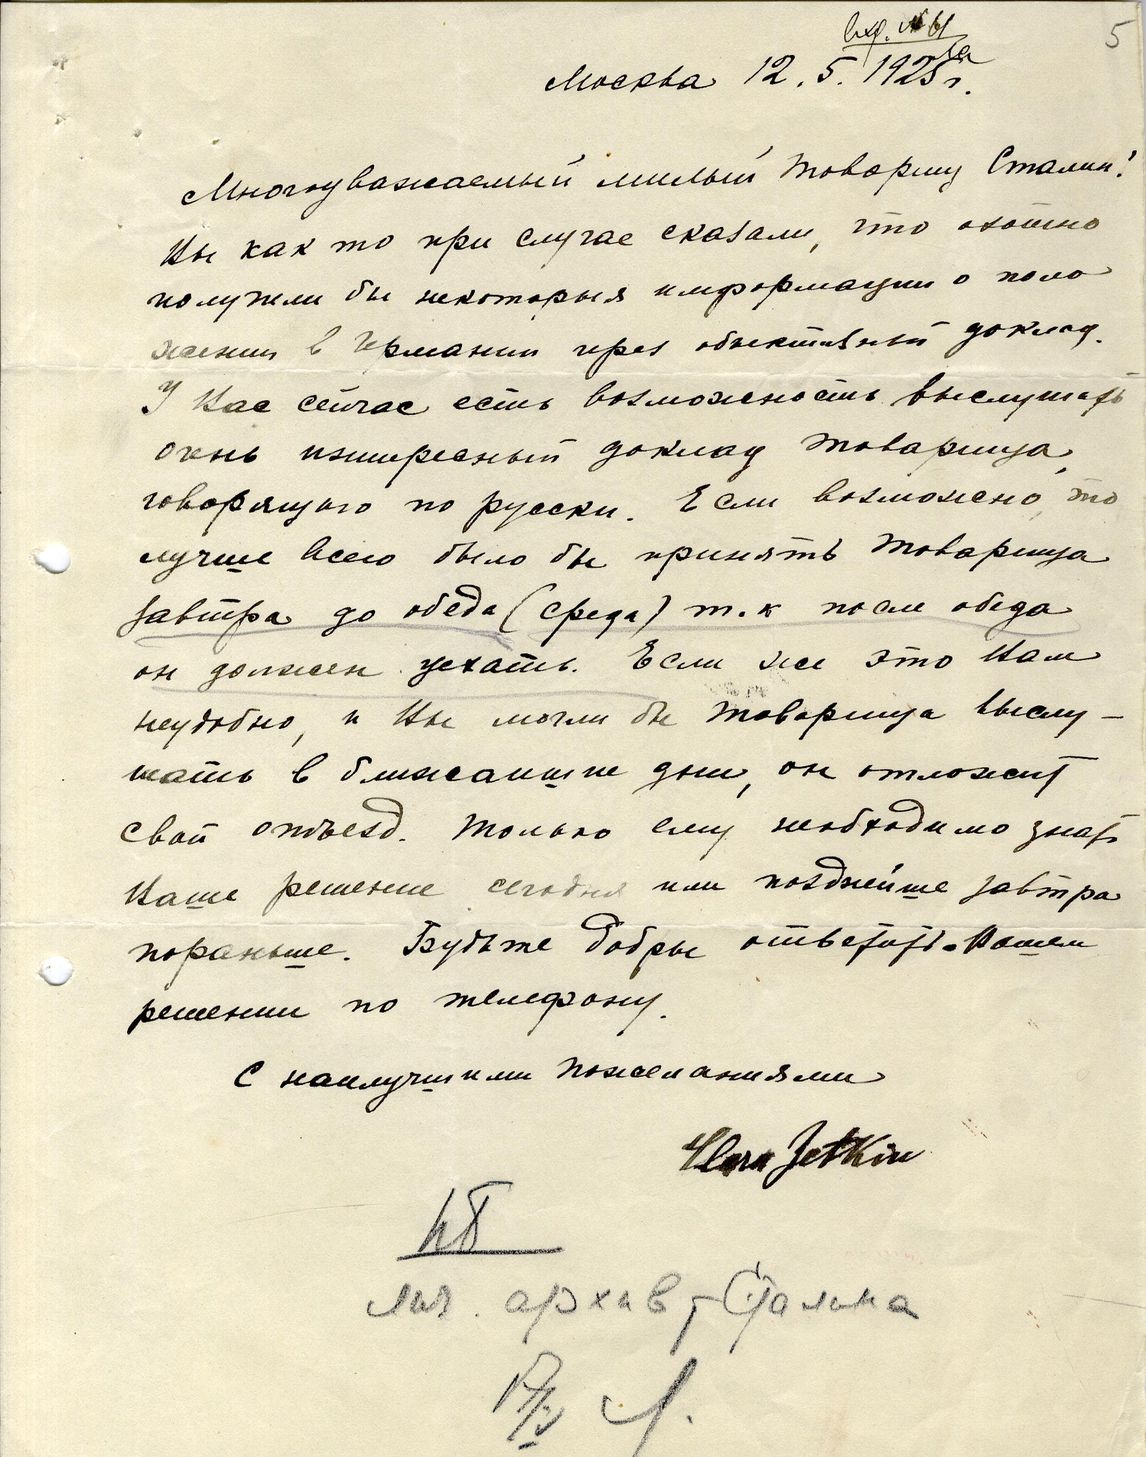 5
Москва 12.5.1925 г.
Многоуважаемый милый товарищ Сталин!
Вы как то при случае сказали, что охотно
получили бы некоторыя информации о поло
жении в Германии через объективный доклад.
У Вас сейчас есть возможность выслушать
очень интересный доклад товарища,
говорящего по русски. Если возможно, то
лучше всего было бы принять товарища
завтра до обеда (среда) т.к после обеда
он должен уехать. Если же это Вам
неудобно, и Вы могли бы товарища выслу-
шать в ближаишие дни, он отложит
свой отъезд. Только ему необходимо знать
Ваше решение сегодня или позднейше завтра
пораньше. Будьте добры ответить о Вашем
решении по телефону.
С наилучшими пожеланиями
Clara Zetkin
лич. архив т. Сталина